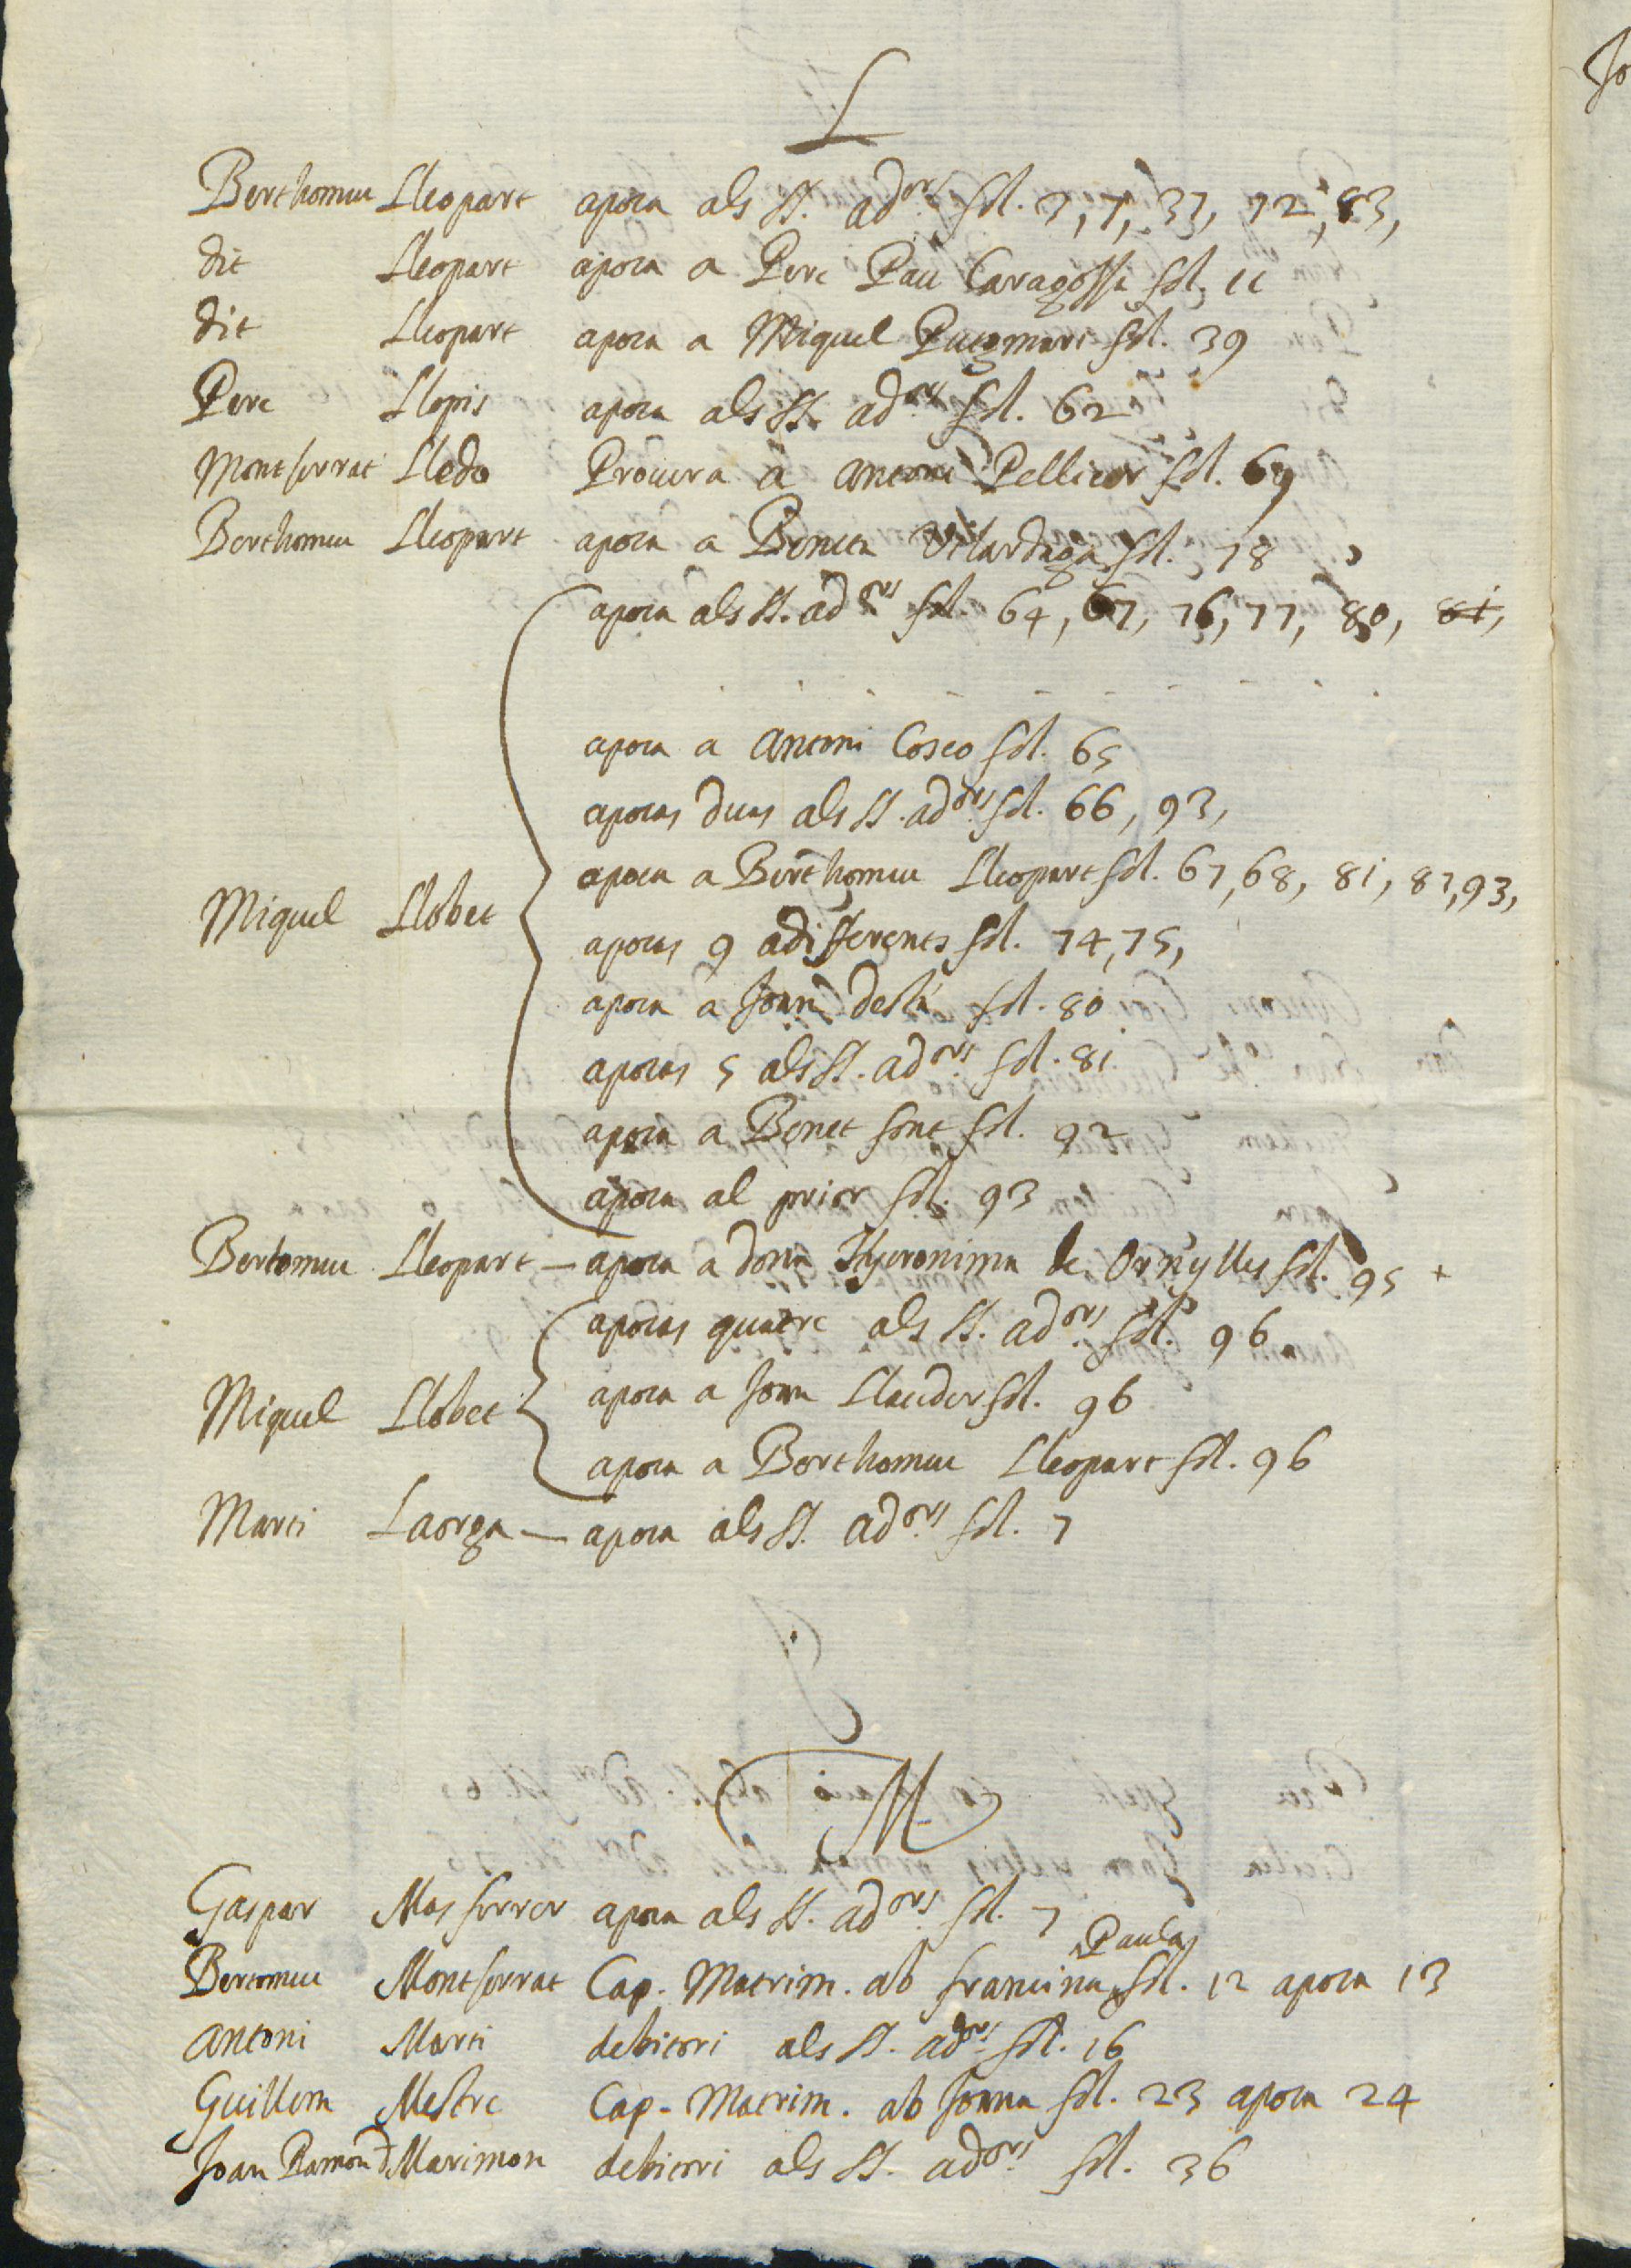 L
Berthomeu Lleopart apoca als SS. ad.ors fol. 3, 7, 37, 72, 83,
dit Lleopart apoca a Pere Pau Caragossa fol. 11
dit Lleopart apoca a Miquel Pucgmari fol. 39
Pere Llopis apoca als SS. ad.ors fol. 62
Montserrat Lledo Procura a Antoni Pellicer fol. 69
Berthomeu Lleopart apoca a Beneta Vilardaga fol. 78
apoca als SS. ad.ors fol. 64, 67, 76, 77, 80, 81,
apoca a Antoni Cosco fol. 65
apocas duas als SS. ad.ors fol. 66, 93,
apoca a Berthomeu Lleopart fol. 67, 68, 81, 87, 93,
Miquel Llobet
apocas 9 a differents fol. 74, 75,
apoca a Joan fol. 80
apocas 5 als SS. ad.ors fol. 81
apoca a Benet font fol. 92
apoca al prior fol. 93
Bertomeu Lleopart – apoca a dona Hyeronima de Ornylles fol. 95 +
apocas quatre als SS. ad.ors fol. 96
Miquel Llobet apoca a Joan Llauder fol. 96
apoca a Berthomeu Lleopart fol. 96
Marti Laorga – apoca als SS. ad.ors fol. 7
M
Gaspar Mas ferrer apoca als SS. ad.ors fol. 7
Paula
Bertomeu Montserrat Cap. Matrim. ab francina fol. 12 apoca 13
Antoni Marti debitori als SS. ad.ors fol. 16
Guillem Mestre Cap. Matrim. ab Joana fol. 23 apoca 24
Joan Ramon d Marimon debitori als SS. ad.ors fol. 36
Jo